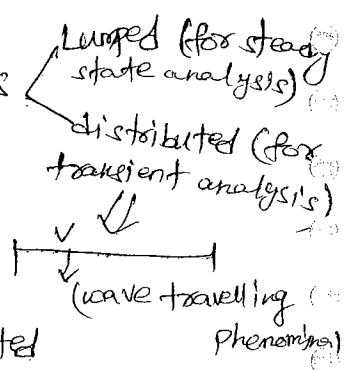 Lumped (for steady
state analysis)
s
distributed (for
transient analysis)
(wave travelling
phenomina)
ted